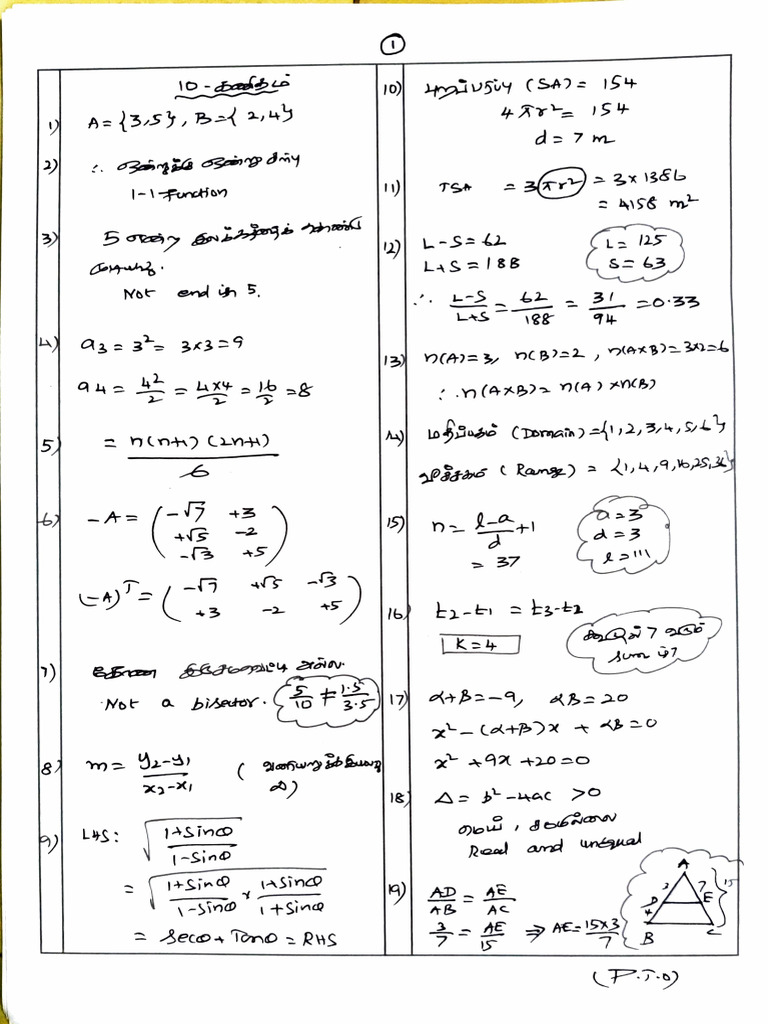 1
10 - கணிதம்
1) A = {3,5}, B = {2,4}
2) ∴ ஒன்றுக்கு ஒன்று சார்பு
1-1 Function
3) 5 என்ற இலக்கத்தைக் கொண்டு
முடியாது.
Not end in 5.
4) a3 = 3² = 3×3 = 9
a4 = 4²/2 = 4×4/2 = 16/2 = 8
5) = n(n+1)(2n+1)/6
6) -A = ( -√7 +3
+√5 -2
-√3 +5 )
(-A)ᵀ = ( -√7 +√5 -√3
+3 -2 +5 )
7) இருசமவெட்டி அல்ல.
Not a bisector. 5/10 ≠ 1.5/3.5
8) m = y2-y1/x2-x1
9) LHS: √(1+sinθ/1-sinθ)
= √(1+sinθ/1-sinθ × 1+sinθ/1+sinθ)
= secθ + Tanθ = RHS
10) புறப்பரப்பு (SA) = 154
4πr² = 154
d = 7 m
11) TSA = 3πr² = 3×1386
= 4158 m²
12) L-S = 62
L+S = 188
L = 125
S = 63
∴ L-S/L+S = 62/188 = 31/94 = 0.33
13) n(A)=3, n(B)=2, n(A×B)=3×2=6
∴ n(A×B) = n(A)×n(B)
14) மதிப்பகம் (Domain) = {1,2,3,4,5,6}
வீச்சகம் (Range) = {1,4,9,16,25,36}
15) n = l-a/d + 1
= 37
a = 3
d = 3
l = 111
16) t2-t1 = t3-t2
K = 4
கூடுதல் 7
Sum is 7
17) α+β = -9, αβ = 20
x² - (α+β)x + αβ = 0
x² + 9x + 20 = 0
18) Δ = b²-4ac > 0
மெய், சமமில்லை
Real and unequal
19) AD/AB = AE/AC
3/7 = AE/15 ⇒ AE = 15×3/7
A
D
E
4
B
C
15
(P.T.O)